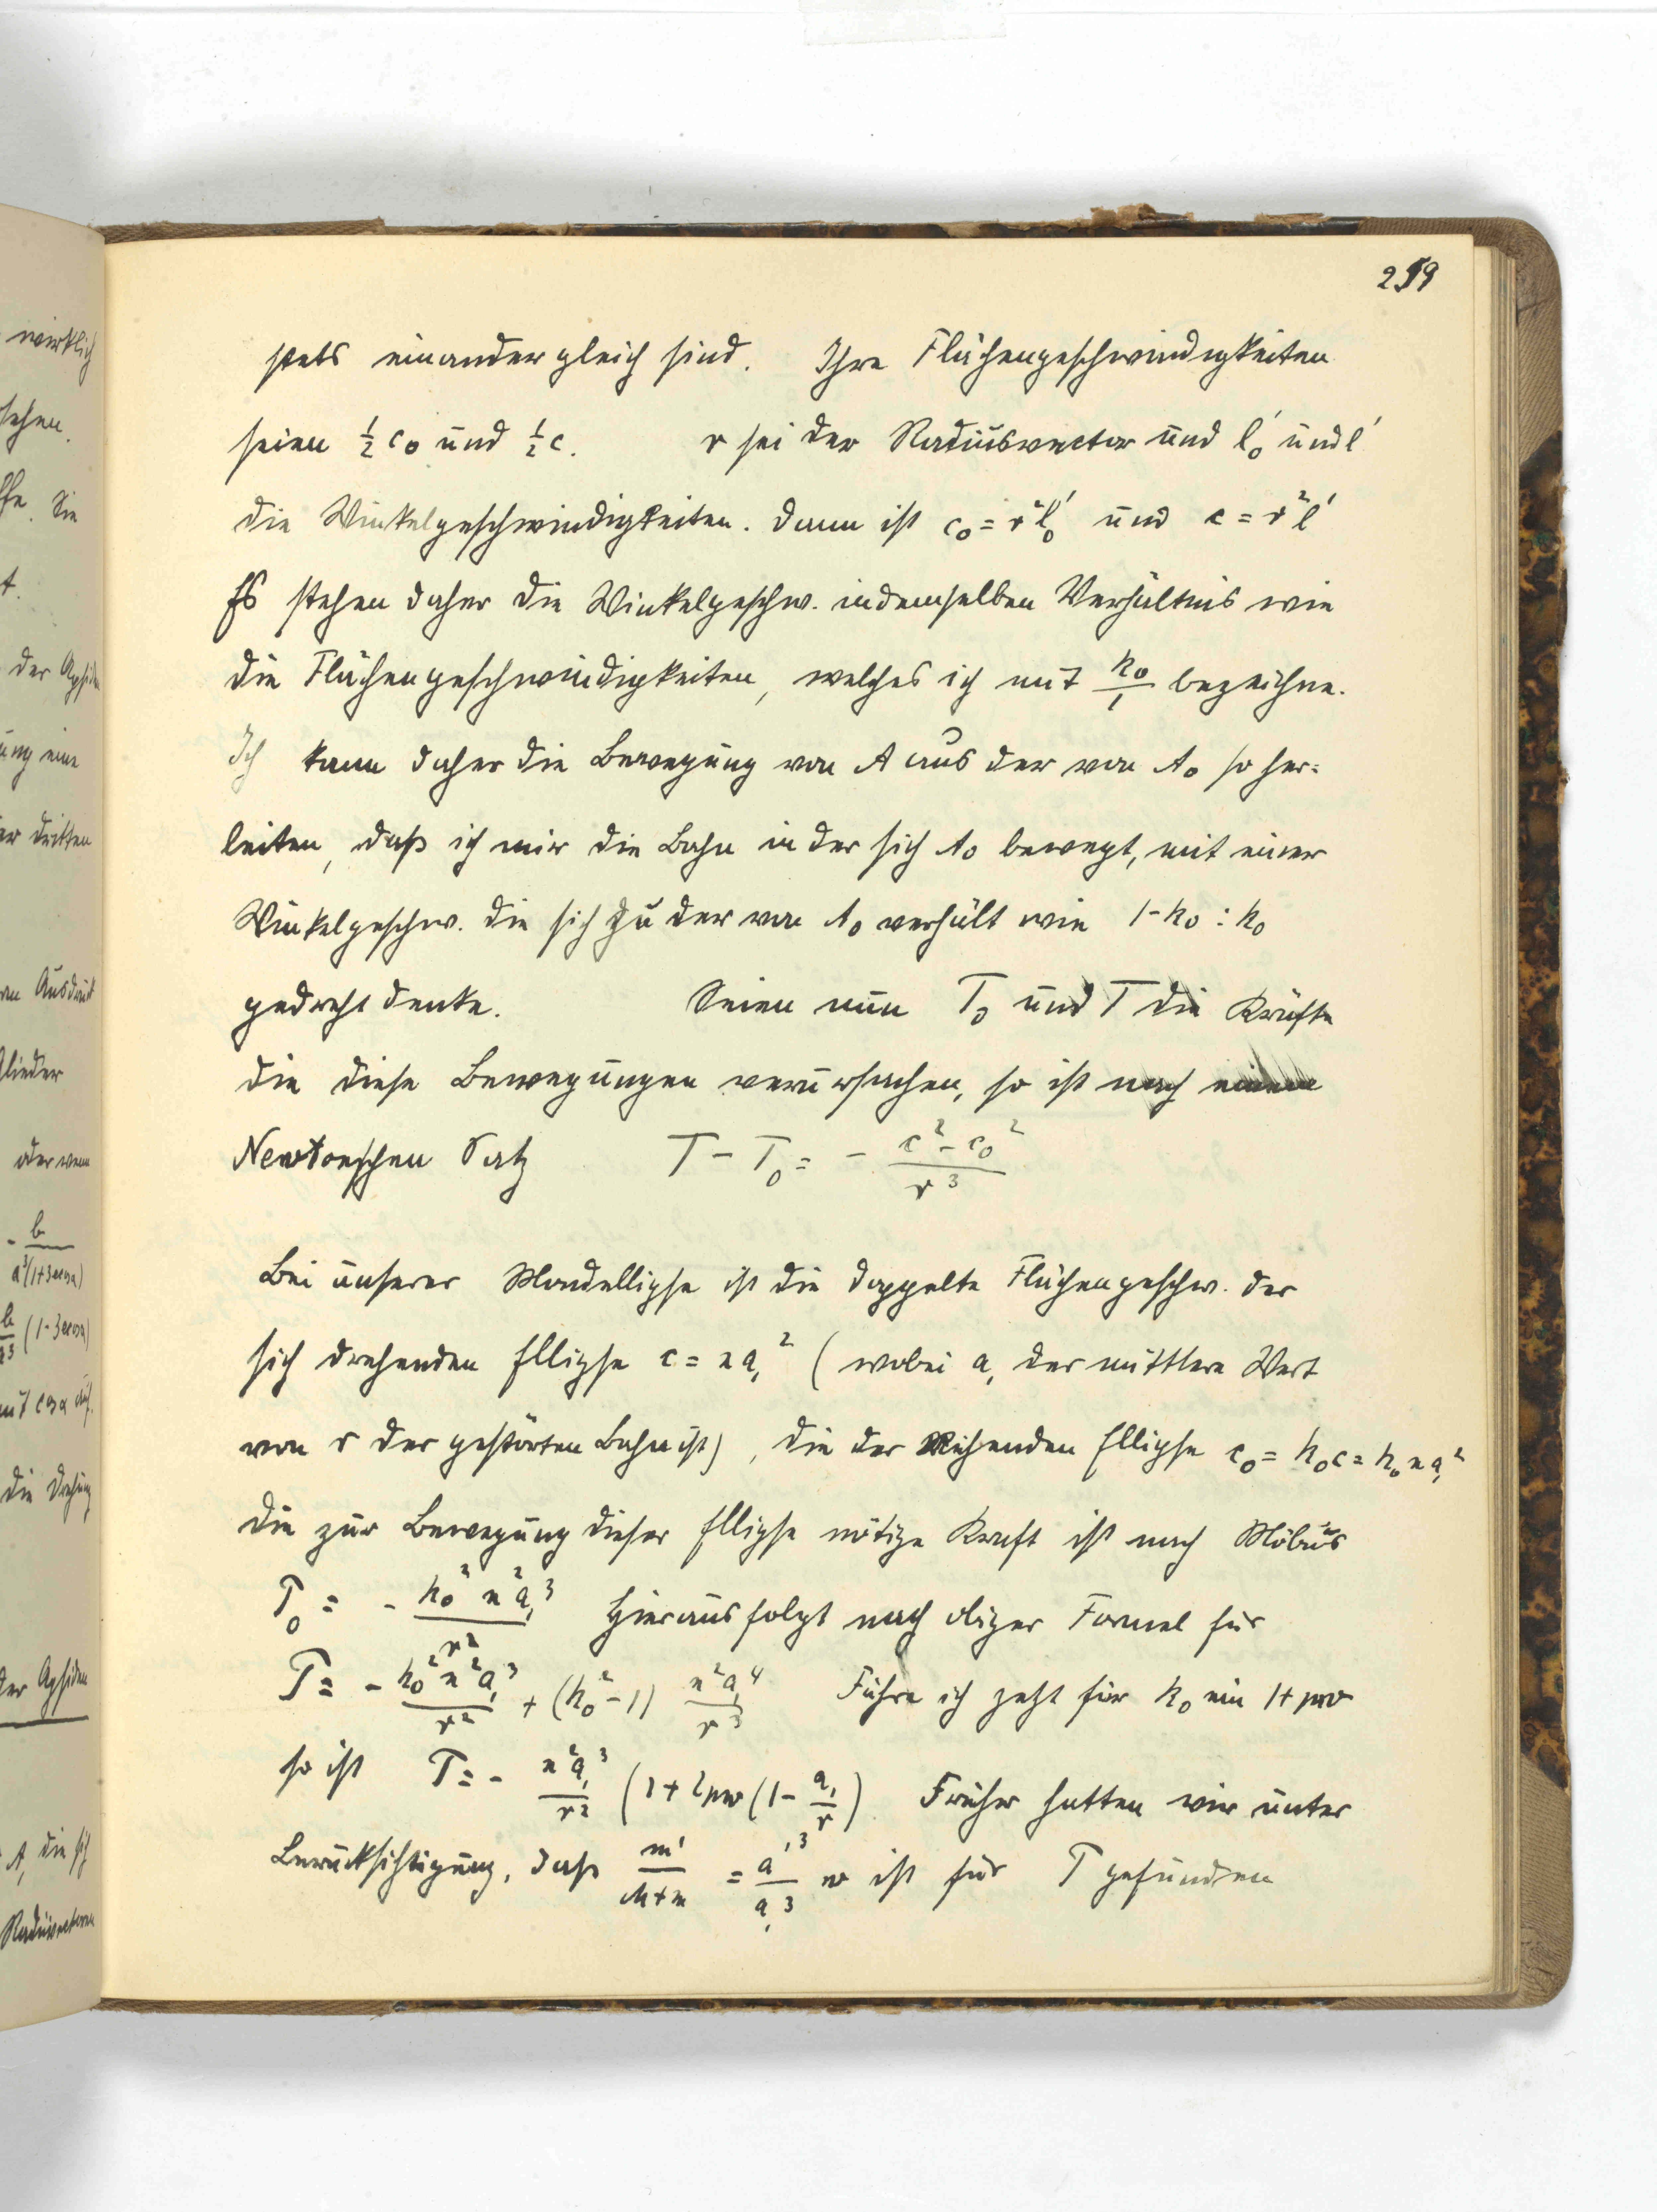 259
stets einander gleich sind. Ihre Flächengeschwindigkeiten
seien ½ c₀ und ½ c. r sei der Radiusvector und l₀' und l'
die Winkelgeschwindigkeiten. Dann ist c₀ = r²l₀' und c = r²l'
Es stehen daher die Winkelgeschw. in demselben Verhältnis wie
die Flächengeschwindigkeiten, welches ich mit h₀/1 bezeichne.
Ich kann daher die Bewegung von A aus der von A₀ so her=
leiten, daß ich mir die Bahn in der sich A₀ bewegt, mit einer
Winkelgeschw. die sich zu der von A₀ verhält wie 1-h₀ : h₀
gedreht denke. Seien nun T₀ und T die Kräfte
die diese Bewegungen verursachen, so ist nach einem
Newtonschen Satz T - T₀ = - (c² - c₀²)/r³
Bei unserer Mondellipse ist die doppelte Flächengeschw. der
sich drehenden Ellipse c = na,² (wobei a, der mittlere Wert
von r der gestörten Bahn ist), die der ruhenden Ellipse c₀ = h₀c = h₀na,²
die zur Bewegung dieser Ellipse nötige Kraft ist nach Möbius
T₀ = - h₀²n²a,³/r² Hieraus folgt nach obiger Formel für
T = - h₀²n²a,³/r² + (h₀²-1) n²a,⁴/r³ Führe ich jetzt für h₀ ein 1+μν
so ist T = - n²a,³/r² (1+2μν(1- a,/r) Früher hatten wir unter
Berücksichtigung, dass m'/(M+m) = a'³/a,³ ν ist für T gefunden
wirklich
sehen.
Sie
t.
der Apsiden
ung eine
dritten
Ausdruck
Glieder
oder wenn
- b/a³(1+3e cos α)
(1-3e cos α)
die Drehung
der Apsiden
A, die sich
Radiusvectoren